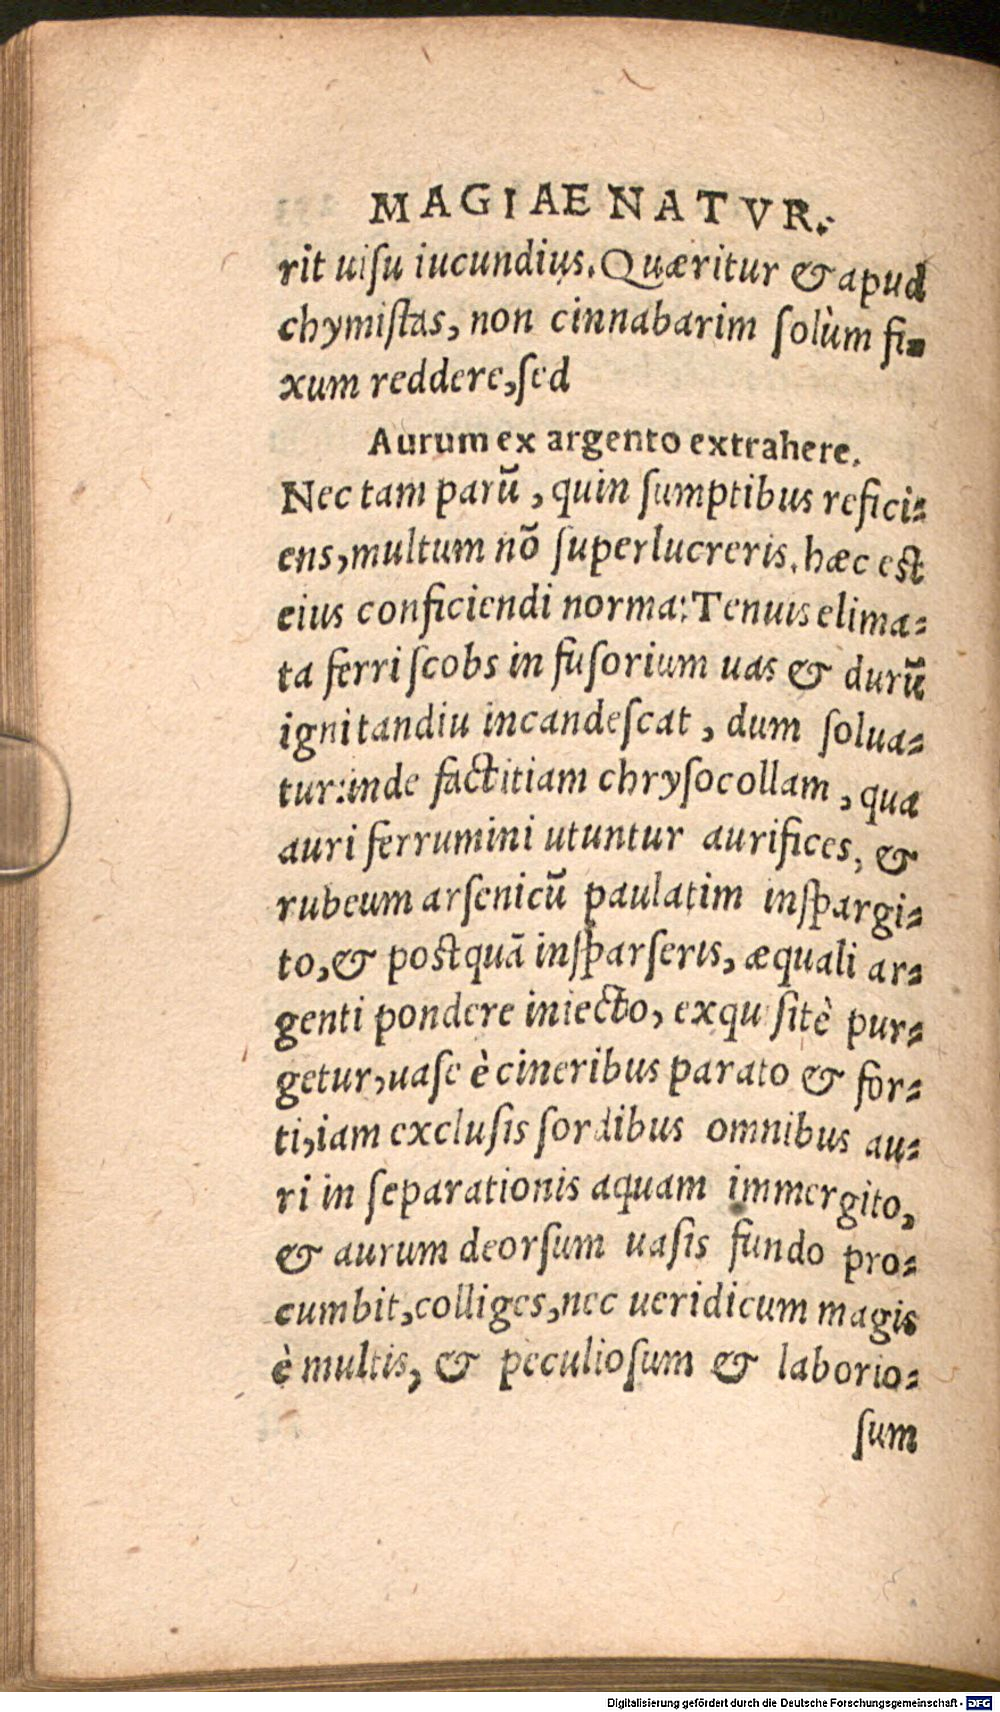 MAGIAE NATVR.
rit uisu iucundius. Quæritur & apud
chymistas, non cinnabarim solùm fi-
xum reddere, sed
Aurum ex argento extrahere.
Nec tam parũ, quin sumptibus refici-
ens, multum nõ superlucreris. hæc est
eius conficiendi norma: Tenuis elima-
ta ferri scobs in fusorium uas & durũ
igni tandiu incandescat, dum solua-
tur: inde factitiam chrysocollam, qua
auri ferrumini utuntur aurifices, &
rubeum arsenicũ paulatim inspargi-
to, & postquã insparseris, æquali ar-
genti pondere iniecto, exquisitè pur-
getur, uase è cineribus parato & for-
ti, iam exclusis sordibus omnibus au-
ri in separationis aquam immergito,
& aurum deorsum uasis fundo pro-
cumbit, colliges, nec ueridicum magis
è multis, & peculiosum & laborio-
sum
Digitalisierung gefördert durch die Deutsche Forschungsgemeinschaft - DFG